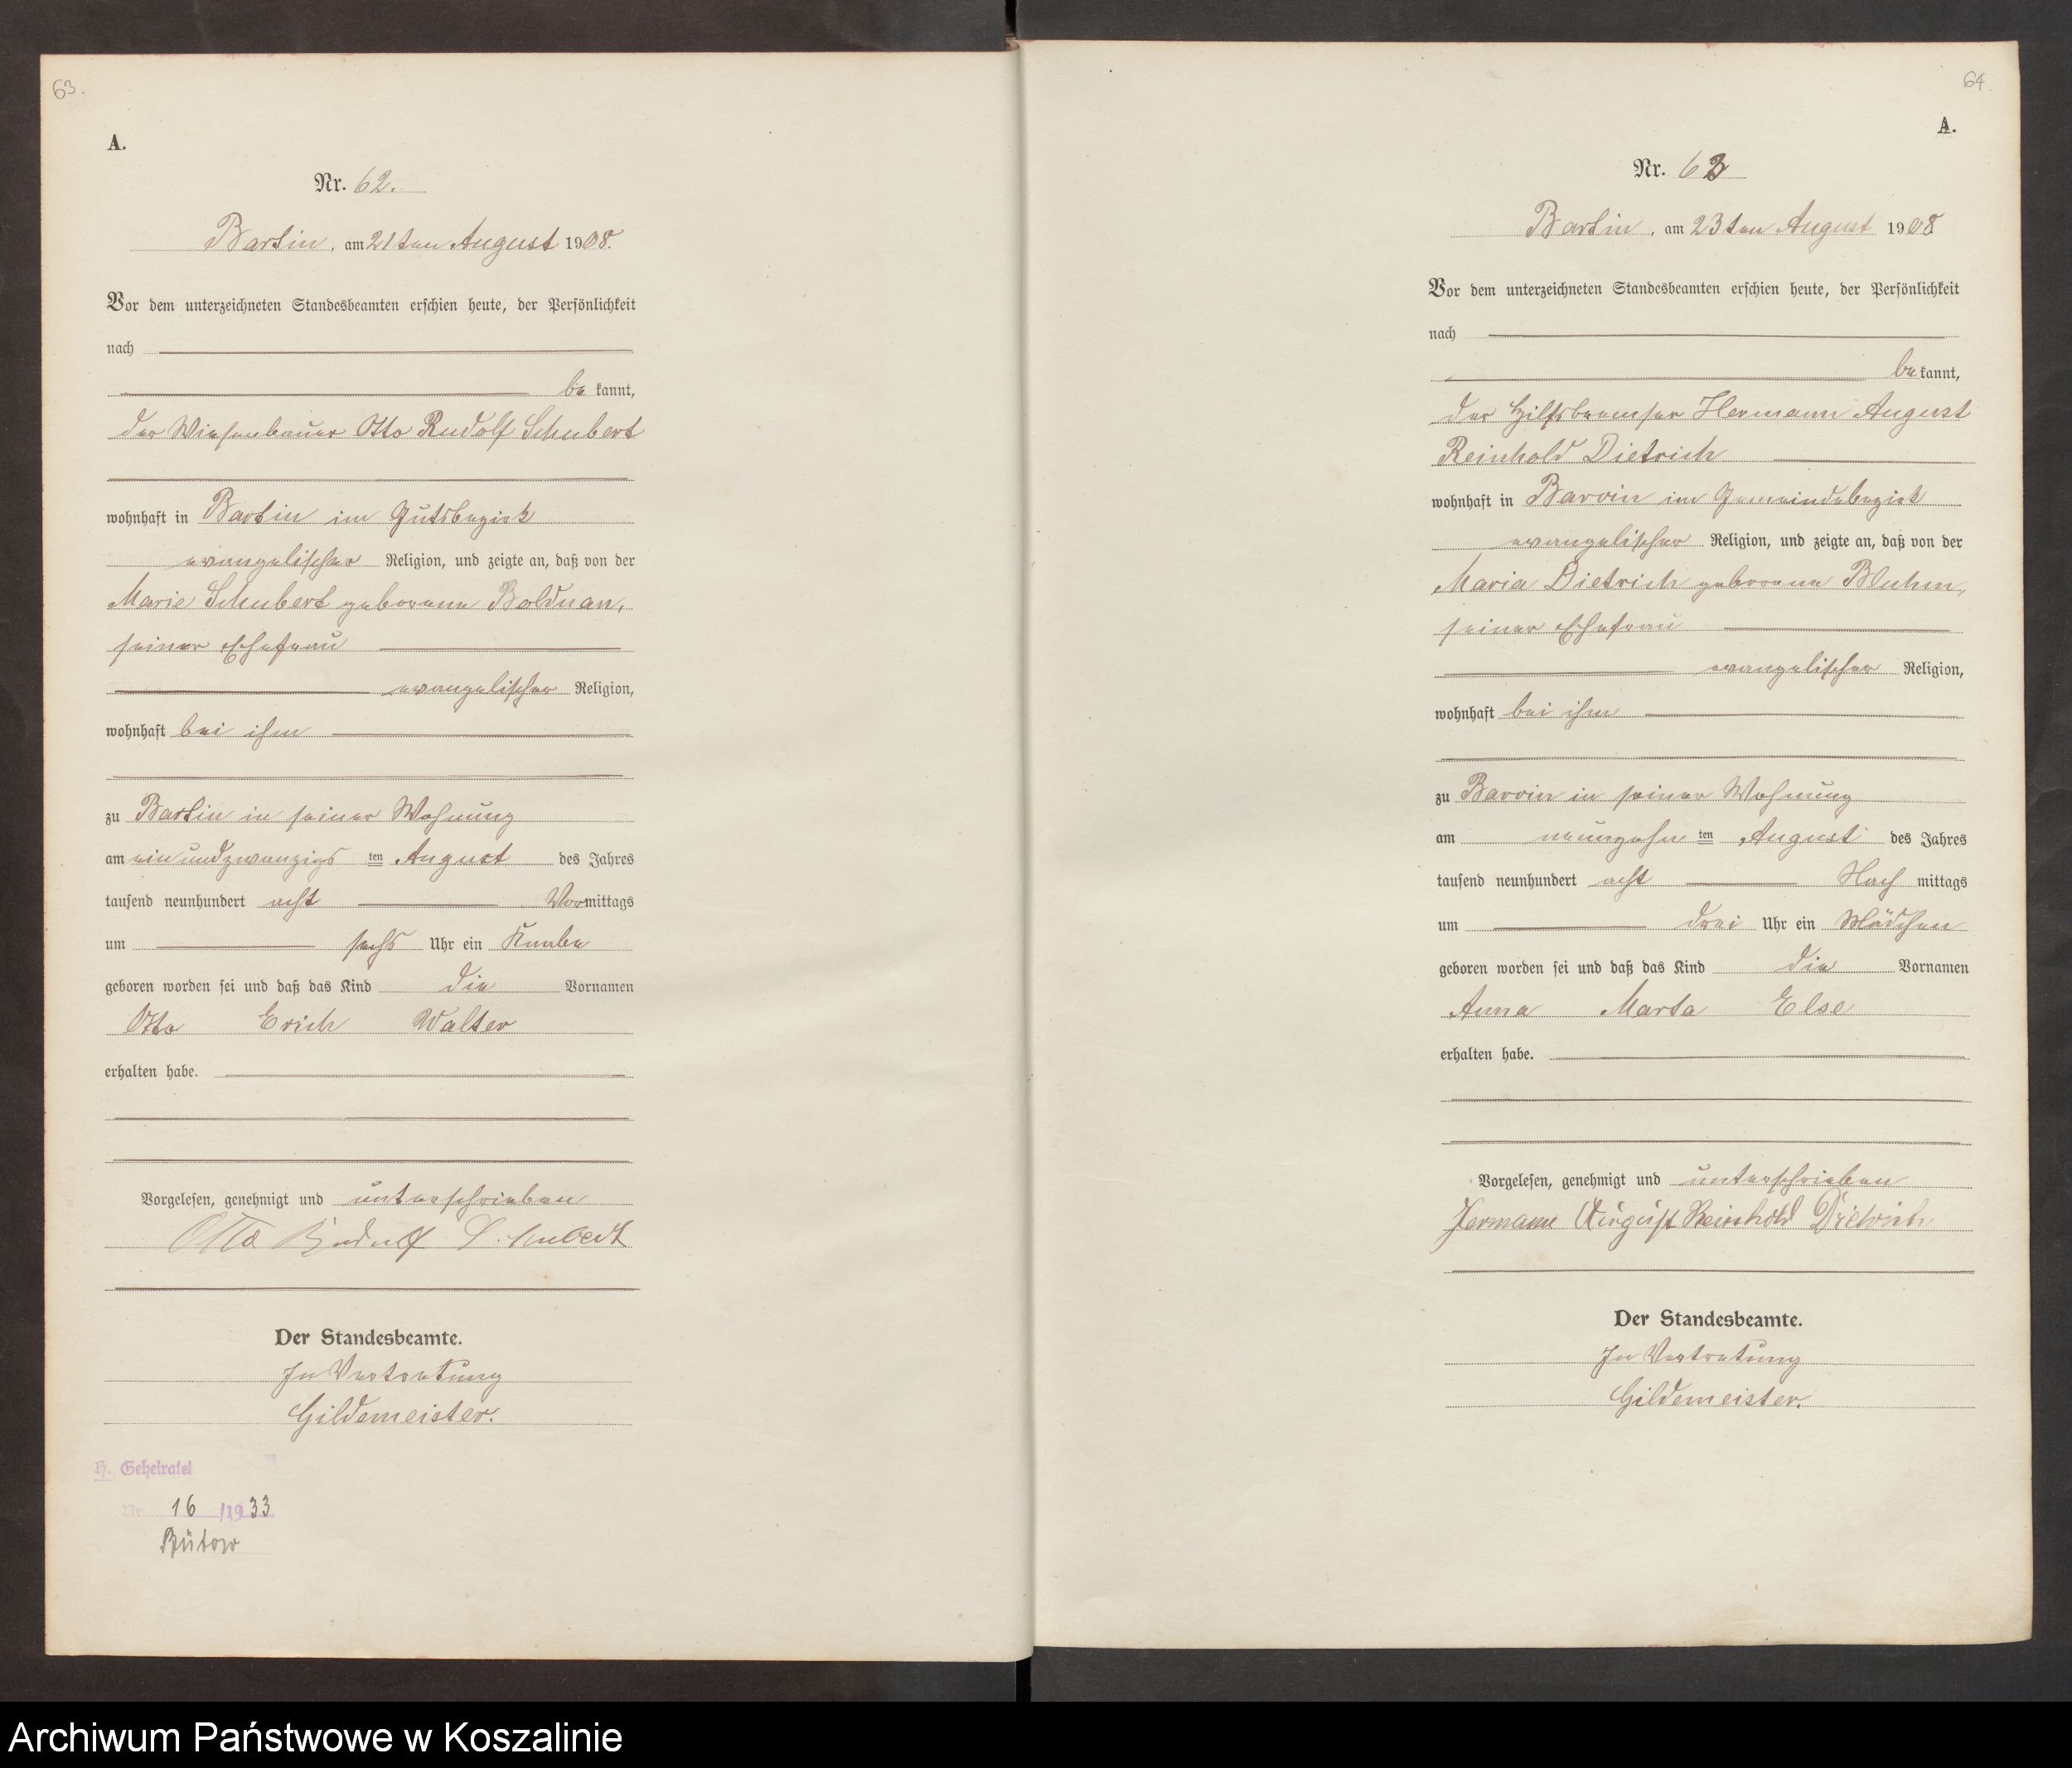 63.
A.
Nr. 62.
Bartin, am 21ten August 1908.
Vor dem unterzeichneten Standesbeamten erschien heute, der Persönlichkeit
nach
be kannt,
der Wiesenbauer Otto Rudolf Schubert
wohnhaft in Bartin im Gutsbezirk
evangelischer Religion, und zeigte an, daß von der
Marie Schubert geborene Bolduan,
seiner Ehefrau
evangelischer Religion,
wohnhaft bei ihm
zu Bartin in seiner Wohnung
am ein und zwanzigs ten August des Jahres
tausend neunhundert acht Vormittags
um sechs Uhr ein Knabe
geboren worden sei und daß das Kind die Vornamen
Otto Erich Walter
erhalten habe.
Vorgelesen, genehmigt und unterschrieben
Otto Rudolf Schubert
Der Standesbeamte.
In Vertretung
Gildemeister.
H. Geheiratet
Nr. 16 /1933
Bütow
64.
A.
Nr. 63
Bartin, am 23ten August 1908
Vor dem unterzeichneten Standesbeamten erschien heute, der Persönlichkeit
nach
be kannt,
der Hilfsbremser Hermann August
Reinhold Dietrich
wohnhaft in Barvin im Gemeindebezirk
evangelischer Religion, und zeigte an, daß von der
Maria Dietrich geborene Bluhm,
seiner Ehefrau
evangelischer Religion,
wohnhaft bei ihm
zu Barvin in seiner Wohnung
am neunzehn ten August des Jahres
tausend neunhundert acht Nach mittags
um drei Uhr ein Mädchen
geboren worden sei und daß das Kind die Vornamen
Anna Marta Else
erhalten habe.
Vorgelesen, genehmigt und unterschrieben
Hermann August Reinhold Dietrich
Der Standesbeamte.
In Vertretung
Gildemeister.
Archiwum Państwowe w Koszalinie